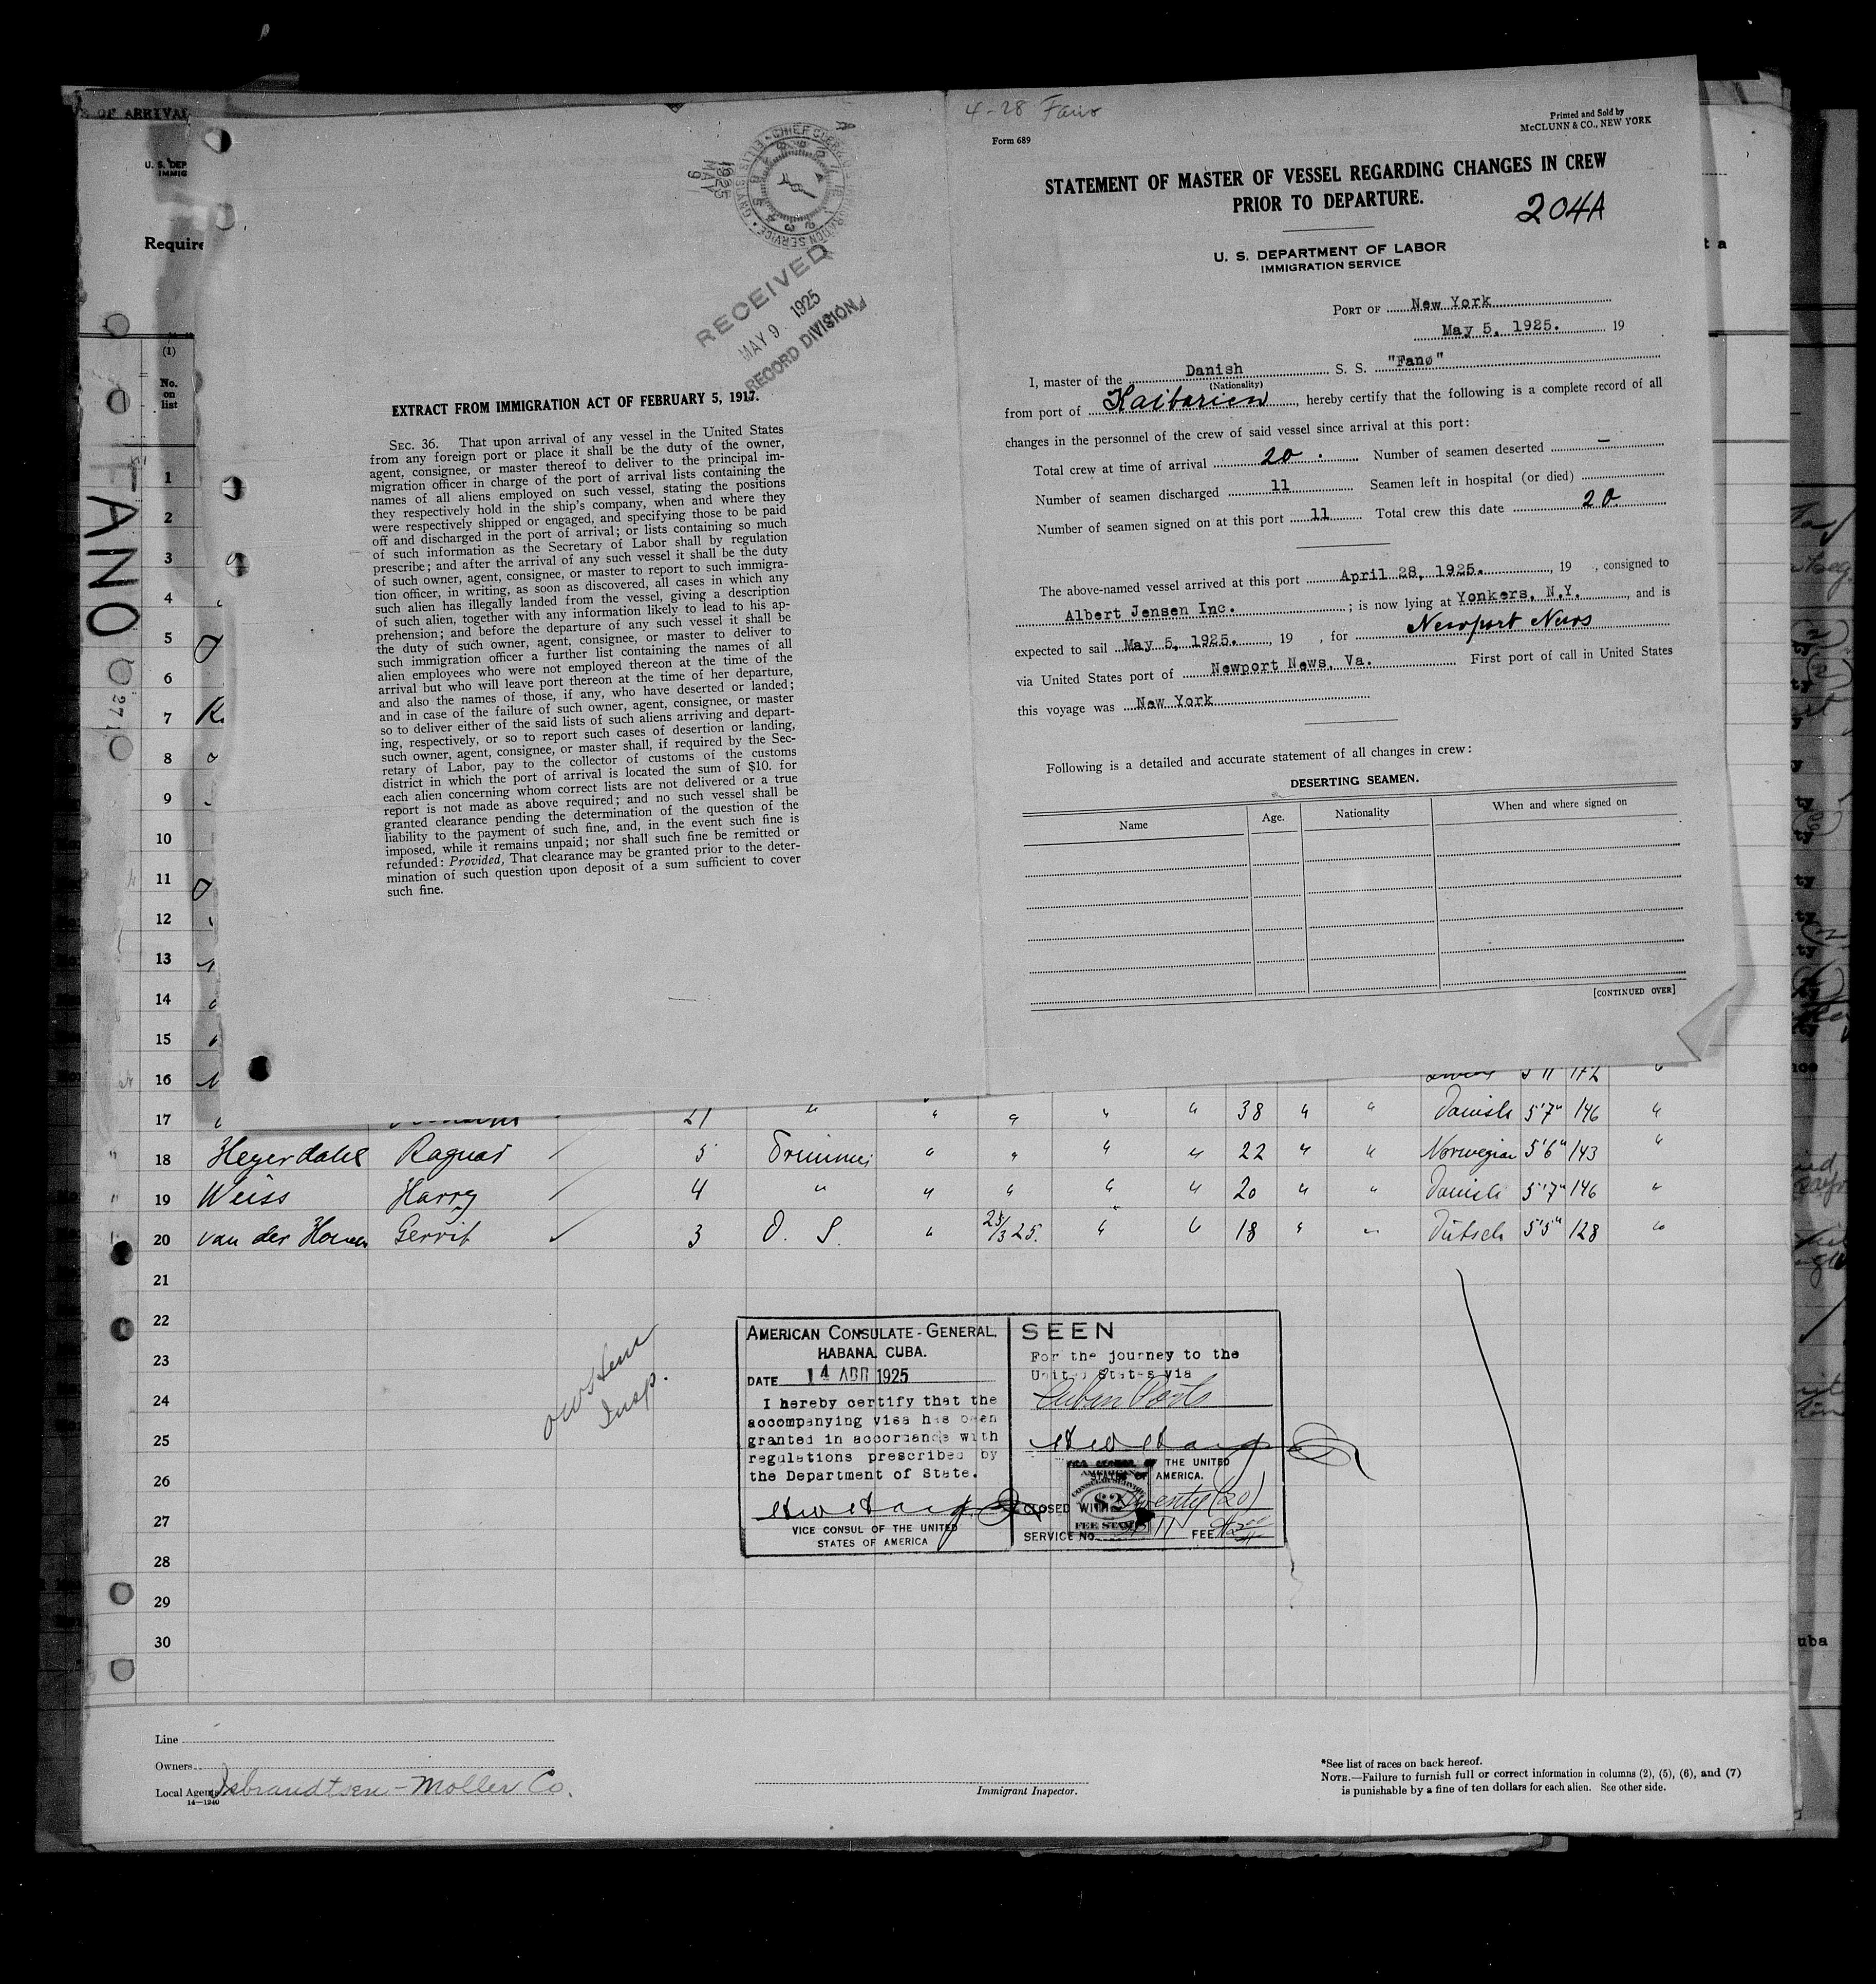 S OF ARRIVAL
U. S. DEP
IMMIG
Require
(1)
No.
on
list
FANO
CHIEF CLERK
IMMIGRATION SERVICE
ELLIS ISLAND
1925
MAY
9
RECEIVED
MAY 9 1925
RECORD DIVISION
EXTRACT FROM IMMIGRATION ACT OF FEBRUARY 5, 1917.
SEC. 36. That upon arrival of any vessel in the United States
from any foreign port or place it shall be the duty of the owner,
agent, consignee, or master thereof to deliver to the principal im-
migration officer in charge of the port of arrival lists containing the
names of all aliens employed on such vessel, stating the positions
they respectively hold in the ship's company, when and where they
were respectively shipped or engaged, and specifying those to be paid
off and discharged in the port of arrival; or lists containing so much
of such information as the Secretary of Labor shall by regulation
prescribe; and after the arrival of any such vessel it shall be the duty
of such owner, agent, consignee, or master to report to such immigra-
tion officer, in writing, as soon as discovered, all cases in which any
such alien has illegally landed from the vessel, giving a description
of such alien, together with any information likely to lead to his ap-
prehension; and before the departure of any such vessel it shall be
the duty of such owner, agent, consignee, or master to deliver to
such immigration officer a further list containing the names of all
alien employees who were not employed thereon at the time of the
arrival but who will leave port thereon at the time of her departure,
and also the names of those, if any, who have deserted or landed;
and in case of the failure of such owner, agent, consignee, or master
so to deliver either of the said lists of such aliens arriving and depart-
ing, respectively, or so to report such cases of desertion or landing,
such owner, agent, consignee, or master shall, if required by the Sec-
retary of Labor, pay to the collector of customs of the customs
district in which the port of arrival is located the sum of $10. for
each alien concerning whom correct lists are not delivered or a true
report is not made as above required; and no such vessel shall be
granted clearance pending the determination of the question of the
liability to the payment of such fine, and, in the event such fine is
imposed, while it remains unpaid; nor shall such fine be remitted or
refunded: Provided, That clearance may be granted prior to the deter-
mination of such question upon deposit of a sum sufficient to cover
such fine.
4-28 Fano
Form 689
Printed and Sold by
McCLUNN & CO., NEW YORK
STATEMENT OF MASTER OF VESSEL REGARDING CHANGES IN CREW
PRIOR TO DEPARTURE.
204A
U. S. DEPARTMENT OF LABOR
IMMIGRATION SERVICE
PORT OF New York
May 5, 1925. 19
I, master of the Danish S. S. "Fanø"
(Nationality)
from port of Kaibarien, hereby certify that the following is a complete record of all
changes in the personnel of the crew of said vessel since arrival at this port:
Total crew at time of arrival 20 . Number of seamen deserted —
Number of seamen discharged 11 Seamen left in hospital (or died)
Number of seamen signed on at this port 11 Total crew this date 20.
The above-named vessel arrived at this port April 28, 1925. , 19 , consigned to
Albert Jensen Inc. ; is now lying at Yonkers, N.Y. , and is
expected to sail May 5, 1925. , 19 , for Newport News
via United States port of Newport News, Va. First port of call in United States
this voyage was New York
Following is a detailed and accurate statement of all changes in crew:
DESERTING SEAMEN.
Name Age. Nationality When and where signed on
[CONTINUED OVER]
1
2
3
4
5
6
7
8
9
10
11
12
13
14
15
16 5'11 172 "
17 21 " " " " " 38 " " Danish 5'7" 146 "
18 Heyerdahl Ragnar 5 Trimmer " " " " 22 " " Norwegian 5'6" 143 "
19 Weiss Harry 4 " " " " " 20 " " Danish 5'7" 146 "
20 van der Hoeven Gerrit 3 O. S. " 25/3 25. " " 18 " " Dutsch 5'5" 128 "
21
22
23
24
25
26
27
28
29
30
Insp.
AMERICAN CONSULATE-GENERAL,
HABANA, CUBA.
DATE 14 ABR 1925
I hereby certify that the
accompanying visa has been
granted in accordance with
regulations prescribed by
the Department of State.
VICE CONSUL OF THE UNITED
STATES OF AMERICA
SEEN
For the journey to the
United States via
Cuban Ports
THE UNITED
STATES OF AMERICA.
AMERICAN
CONSULAR SERVICE
$2
FEE STAMP
CLOSED WITH Twenty (20)
SERVICE No. FEE
Line
Owners
Local Agents Isbrandtsen-Moller Co.
14—1240
Immigrant Inspector.
*See list of races on back hereof.
NOTE.—Failure to furnish full or correct information in columns (2), (5), (6), and (7)
is punishable by a fine of ten dollars for each alien. See other side.